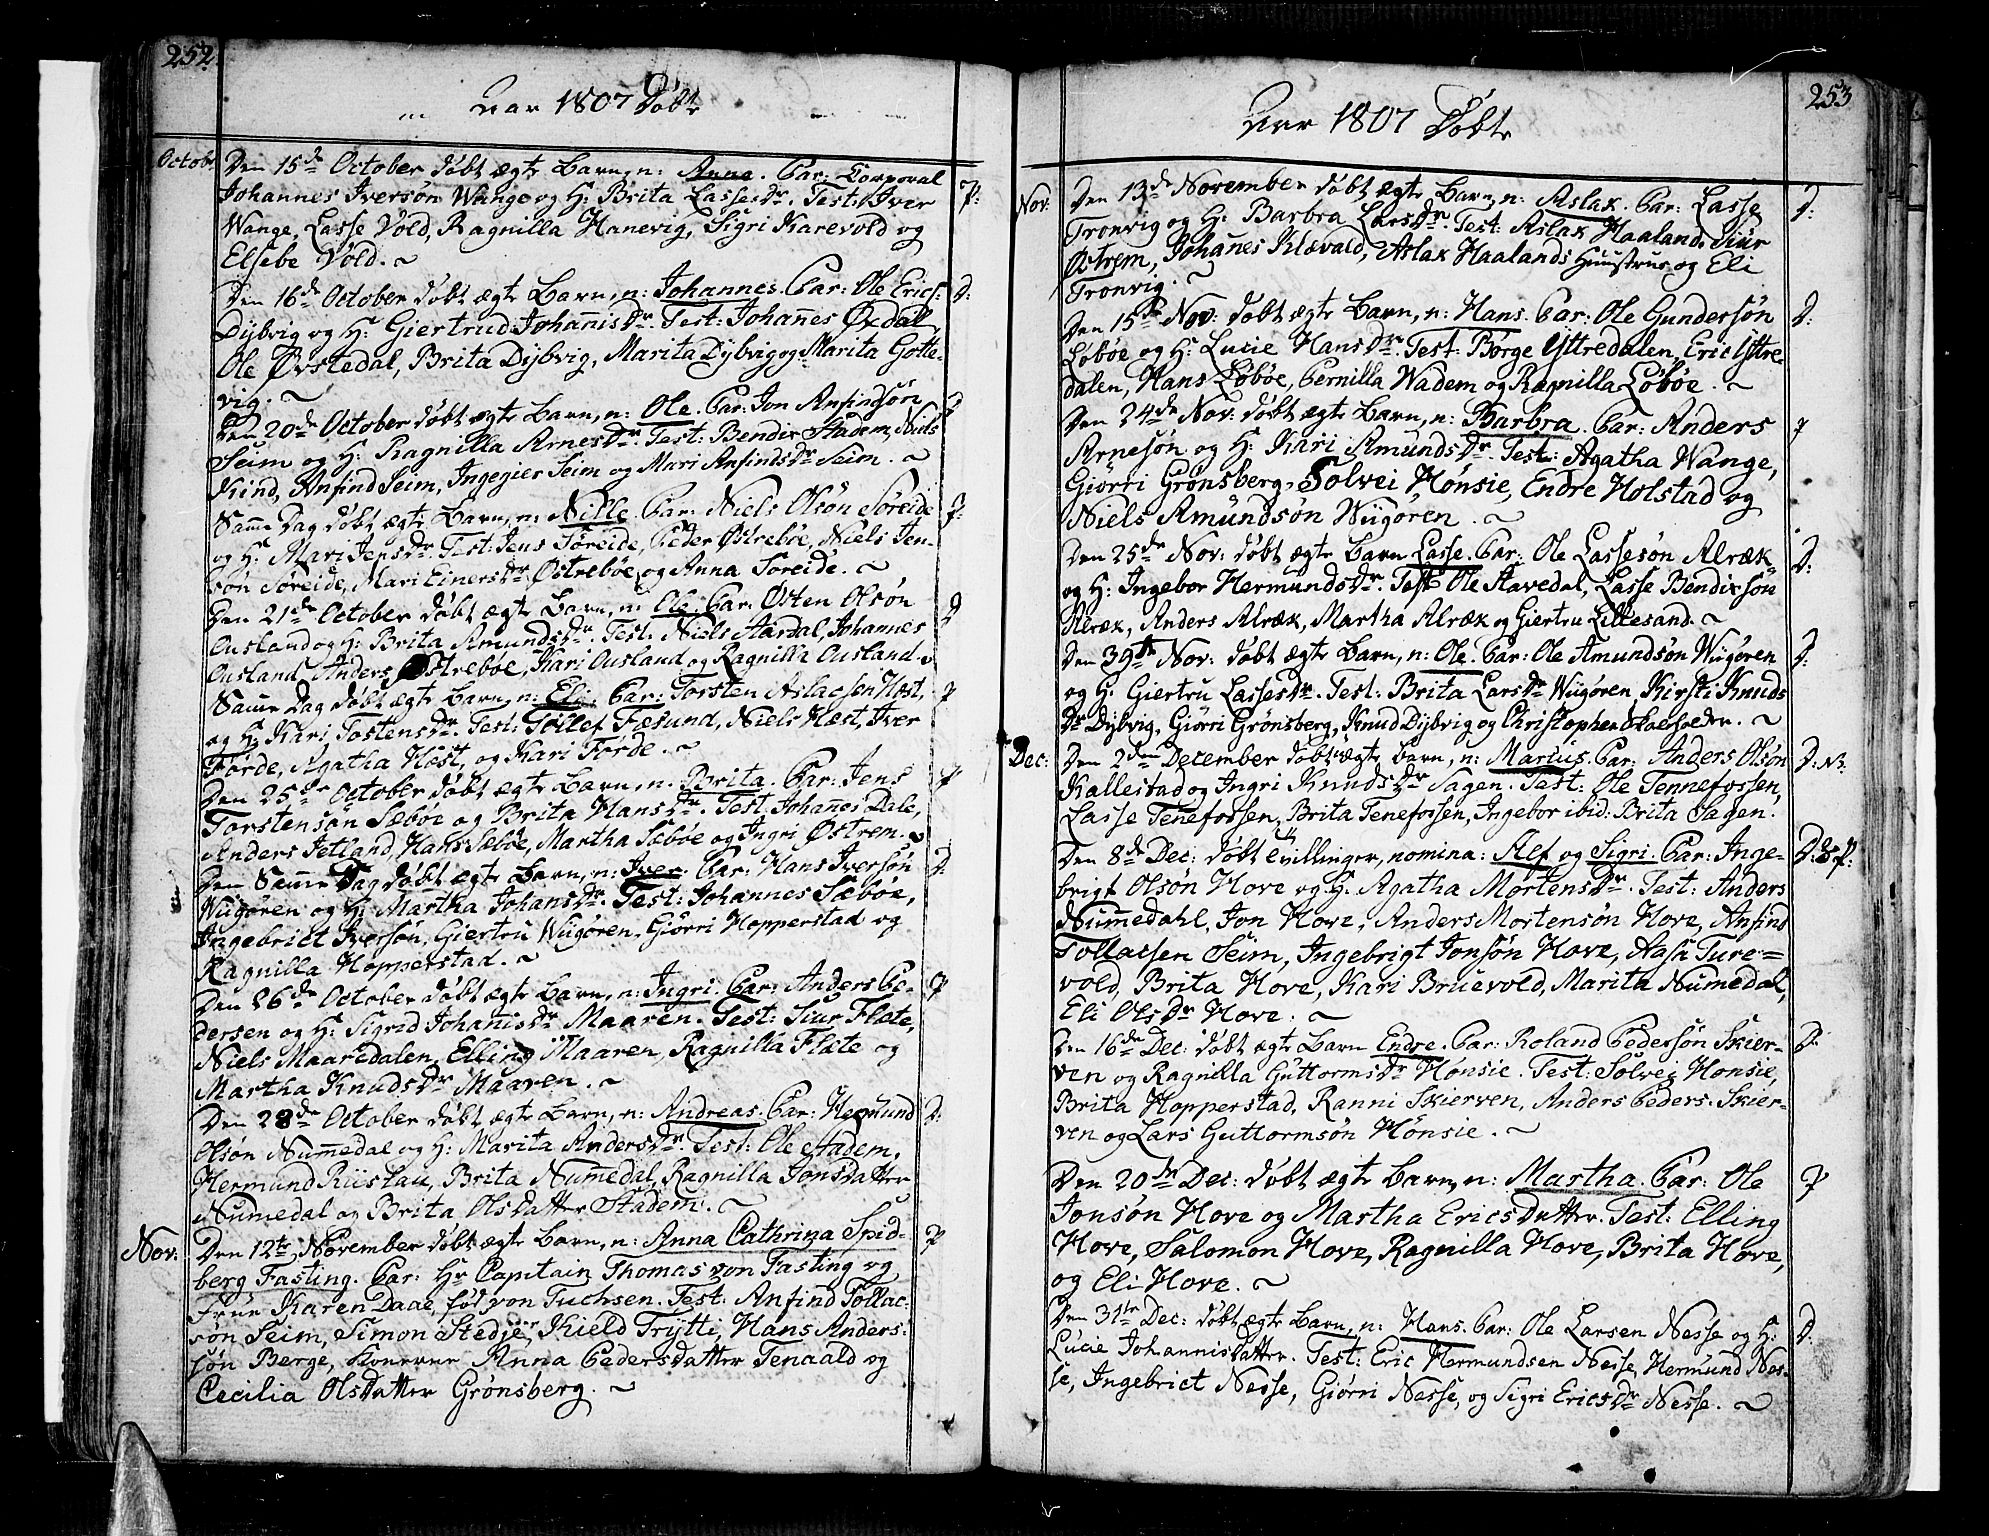 252
Aar 1807 Døbte
Octobr
Den 15de October døbt ægte Barn, n: Anna. Par: Corporal
Johannes Iversøn Wange og H: Brita Lassesdr. Test: Iver
P:
Wange, Lasse Vold, Ragnilla Hanevig, Sigri Karevold og
Elsebe Vold. ~
Den 16de October døbt ægte Barn, n: Johannes. Par: Ole Erics:
D:
Dÿbvig og H: Giertrud Johannisdr. Test: Johannes Øxdal,
Ole Øvstedal, Brita Dÿbvig, Marita Dÿbvig og Marita Gotte-
vig. ~
Den 20de October døbt ægte Barn, n: Ole. Par: Jon Anfindsøn
D
Seim og H: Ragnilla Arnesdr. Test: Bendix Stadem, Niels
Kind, Anfind Seim, Ingegier Seim og Mari Anfindsdr Seim. ~
Samme Dag døbt ægte Barn, n: Nille. Par: Niels Olsøn Søreide
P:
og H: Mari Jensdr. Test: Jens Søreide, Peder Østrebøe, Niels Jen-
søn Søreide, Mari Einersdr Østrebøe og Anna Soreide. ~
Den 21de October døbt ægte Barn, n: Ole. Par: Østen Olsøn
D
Ousland og H: Brita Amundsdr. Test: Niels Aardal, Johannes
Ousland, Anders Østrebøe, Kari Ousland og Ragnilla Ousland ~
Samme Dag døbt ægte Barn, n: Eli. Par: Torsten Aslacsen Høst,
P
og H: Kari Tostensdr. Test: Tollef Fæsund, Niels Hæst, Iver
Førde, Agatha Høst, og Kari Førde. ~
Den 25de October døbt ægte Barn, n: Brita. Par: Jens
P
Torstensøn Sæbøe og Brita Hansdr. Test: Johanes Dale,
Anders Jetland, Hans Sæbøe, Martha Sæbøe og Ingri Østrem. ~
Den Samme Dag døbt ægte Barn, n: Iver. Par: Hans Iversøn
D:
Wügøren og H: Martha Johansdr. Test: Johannes Sæbøe,
Ingebrict Iversøn, Giertru Wügøren, Giørri Hopperstad og
Ragnilla Hopperstad. ~
Den 26de October døbt ægte Barn, n: Ingri. Par: Anders Pe-
P
dersen og H: Sigrid Johanisdr Maaren. Test: Siur Flæte,
Niels Maaredalen, Elling Maaren, Ragnilla Flæte og
Martha Knudsdr Maaren. ~
Den 28de October døbt ægte Barn, n: Andreas. Par: Hermund
D:
Olsøn Nummedal og H: Marita Andersdr. Test: Ole Stadem,
Hermund Riistau, Brita Nummedal, Ragnilla Jonsdatter
Nummedal og Brita Olsdatter Stadem. ~
Nov:
Den 12te November døbt ægte Barn, n: Anna Cathrina Spid-
P
berg Fasting. Par: Hr Capitain Thomas von Fasting og
Frue Karen Daae, fød von Tuchsen. Test: Anfind Tollac-
søn Seim, Simon Stedje, Kield Trÿtti, Hans Anders-
søn Berge, Konerne Anna Pedersdatter Tenaald og
Cecilia Olsdatter Grønsberg. ~
253
Aar 1807 Døbte
Nov:
Den 13de November døbt ægte Barn, n: Aslak. Par: Lasse
D:
Tronvig og H: Barbra Larsdr. Test: Aslak Haaland, Siur
Østrem, Johannes Klævald, Aslak Haalands Huustrue og Eli
Tronvig. ~
Den 15de Nov: døbt ægte Barn, n: Hans. Par: Ole Gundersøn
D:
Løbøe og H: Lucie Hansdr. Test: Børge Yttredalen, Eric Yttre-
dalen, Hans Løbøe, Pernilla Wadem og Ragnilla Løbøe. ~
Den 24de Nov: døbt ægte Barn, n: Barbra. Par: Anders
P
Arnesøn og H: Kari Amundsdr. Test: Agatha Wange,
Giørri Grønsberg, Solvei Hønsie, Endre Holstad og
Niels Amundsøn Wügøren. ~
Den 25de Nov: døbt ægte Barn Lasse. Par: Ole Lassesøn Alræk
D:
og H: Ingebor Hermundsdr. Test Ole Stavedal, Lasse Bendixsøn
Alræk, Anders Alræk, Martha Alræk og Giertru Lillesand. ~
Den 39te Nov: døbt ægte Barn, n: Ole. Par: Ole Amundsøn Wügøren
D:
og H: Giertru Lassesdr. Test: Brita Larsdr Wügøren, Kirsti Knuds
dr Dÿbvig, Giørri Grønsberg, Knud Dÿbvig og Christopher ~
Dec:
Den 2den December døbt uægte Barn, n: Marius. Par: Anders Olsøn
D: N3.
Kallestad og Ingri Knudsdr Sagen. Test: Ole Tennefossen,
Lasse Tenefossen, Brita Tenefossen, Ingebor ibid: Brita Sagen.
Den 8de Dec: døbt Tvillinger, nomina: Alf og Sigri. Par: Inge-
D: & P:
brigt Olsøn Hove og H: Agatha Mortensdr. Test: Anders
Nummedahl, Jon Hove, Anders Mortensøn Hove, Anfind
Tollacsen Seim, Ingebrigt Jonsøn Hove, Aasa Ture-
vold, Brita Hove, Kari Bruevold, Marita Nummedal,
Eli Olsdr Hove. ~
Den 16de Dec: døbt ægte Barn Endre. Par: Roland Pedersøn Skier-
D:
ven og Ragnilla Guttormsdr Hønsie. Test: Solvei Hønsie,
Brita Hopperstad, Ranni Skierven, Anders Peders: Skier-
ven og Lars Guttormsøn Hønsie. ~
Den 20de Dec: døbt ægte Barn, n: Martha. Par: Ole
P
Jonsøn Hove og Martha Ericsdatter. Test: Elling
Hove, Salomon Hove, Ragnilla Hove, Brita Hove,
og Eli Hove. ~
Den 31te Dec: døbt ægte Barn, n: Hans. Par: Ole Larsen Nesse og H:
D:
Lucie Johannisdatter. Test: Eric Hermundsen Nesse, Hermund Nes-
se, Ingebrict Nesse, Giørri Nesse, og Sigri Ericsdr Nesse. ~